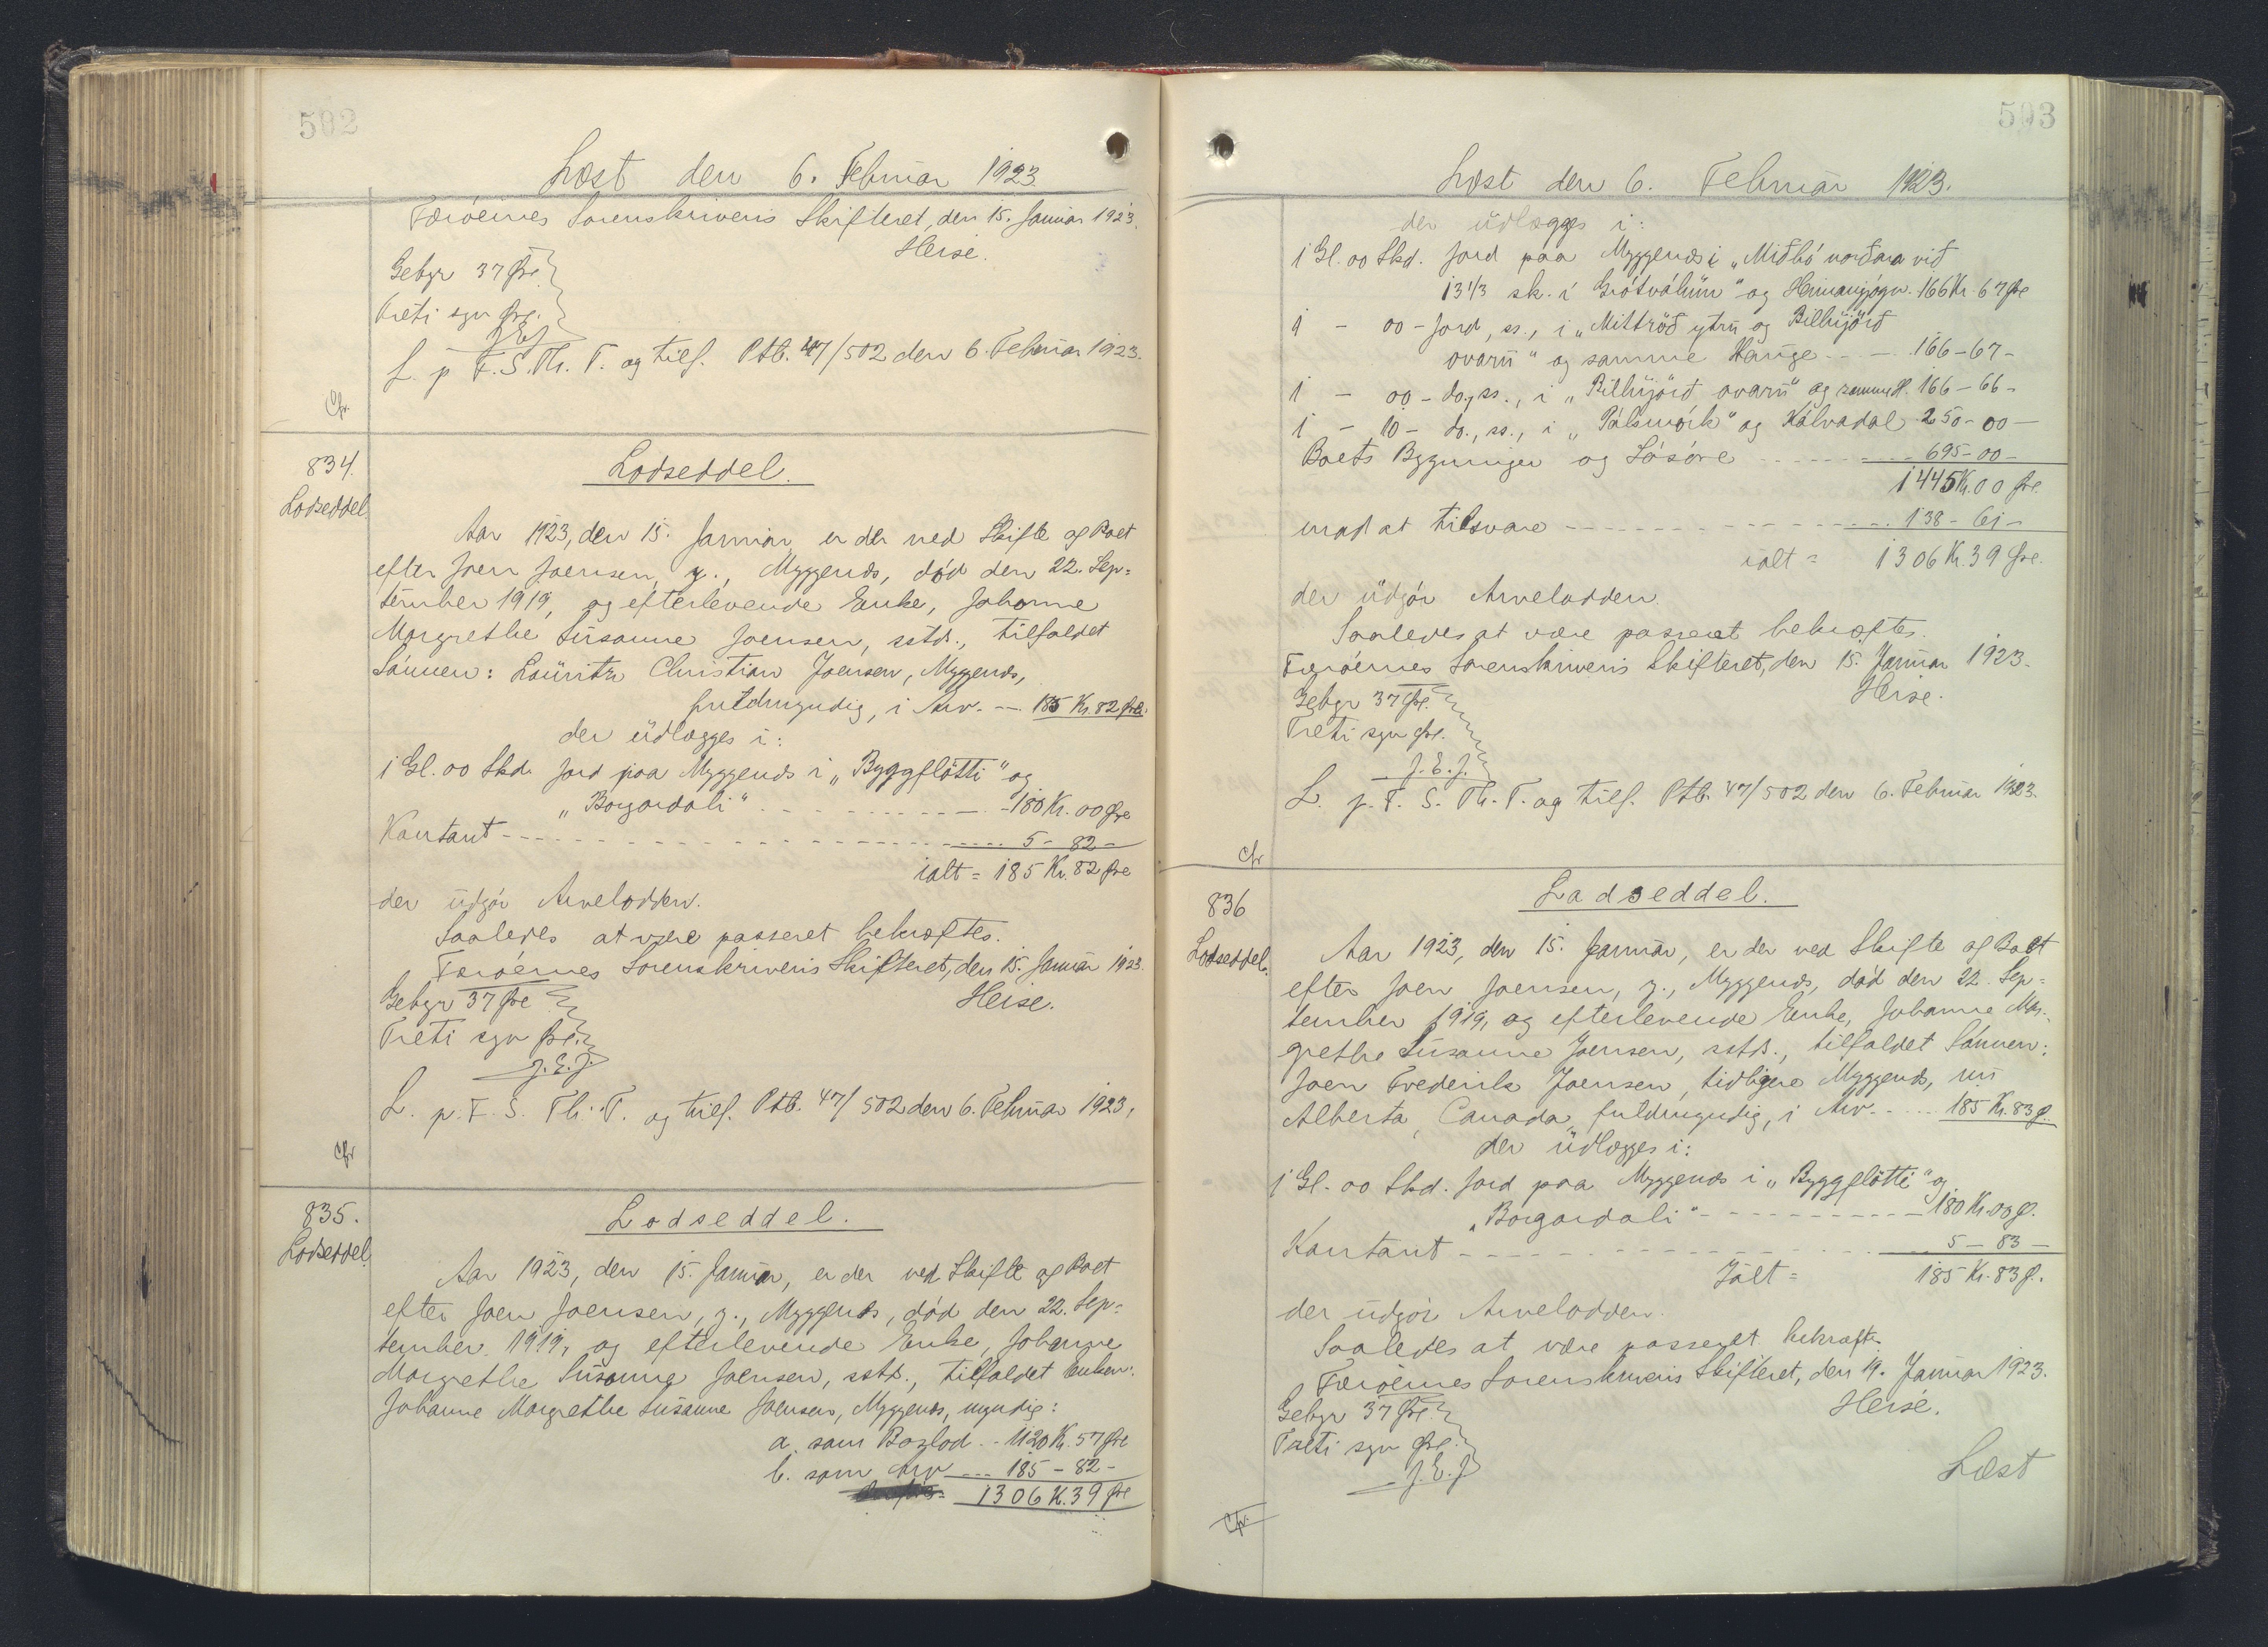 502
Læst den 6. Februar 1923
Færöernes Sorenskriveris Skifteret, den 15. Januar 1923.
Heise.
Gebyr 37 Øre
Treti syv Øre.
J.E.J.
L. p. F. S. Th. T. og tilf. Ptb. 47/502 den 6. Februar 1923.
Cfr.
834.
Lodseddel
Lodseddel.
Aar 1923, den 15. Januar, er der ved Skifte af Boet
efter Joen Joensen, y., Myggenæs, død den 22. Sep-
tember 1919, og efterlevende Enke, Johanne
Margrethe Susanne Joensen, sstds., tilfaldet
Sønnen: Lauritz Christian Joensen, Myggenæs,
fuldmyndig, i Arv. — 185 Kr. 82 Øre.
der udlægges i:
1 Gl. 00 Skd. Jord paa Myggenæs i „Byggfløtti" og
„Borgardali" - - - 180 Kr. 00 Øre
Kontant - - - 5 - 82 -
ialt = 185 Kr. 82 Øre
der udgør Arvelodden.
Saaledes at være passeret bekræftes.
Færöernes Sorenskriveris Skifteret, den 15. Januar 1923.
Heise.
Gebyr 37 Øre
Treti syv Øre.
J.E.J.
L. p. F. S. Th. T. og tilf. Ptb. 47/502 den 6. Februar 1923.
Cfr
835.
Lodseddel
Lodseddel.
Aar 1923, den 15. Januar, er der ved Skifte af Boet
efter Joen Joensen, y., Myggenæs, død den 22. Sep-
tember 1919, og efterlevende Enke, Johanne
Margrethe Susanne Joensen, sstds., tilfaldet Enken:
Johanne Margrethe Susanne Joensen, Myggenæs, myndig:
a. som Boslod - - 1120 K. 57 Øre
b. som Arv - - - 185 - 82 -
1306 K. 39 Øre
503
Læst den 6. Februar 1923.
der udlægges i:
1 Gl. 00 Skd. Jord paa Myggenæs i „Miðbó norðara við
13 1/3 sk. í Grótváhun" og 166 Kr. 67 Øre
1 - 00 - Jord, ss., i „Mittröð ytru og Bilhújörð
ovaru" og samme Hauge - - - 166 - 67 -
1 - 00 - do., ss., i „Bilhújörð ovaru" og samme H. 166 - 66 -
1 - 10 - do., ss., i „Pálsmørk" og Kálvadal 250 - 00 -
Boets Bygninger og Løsøre - - - 695 - 00 -
1445 Kr. 00 Øre.
mod at tilsvare - - - 138 - 61 -
ialt = 1306 K. 39 Øre.
der udgør Arvelodden.
Saaledes at være passeret bekræftes.
Færöernes Sorenskriveris Skifteret, den 15. Januar 1923.
Heise.
Gebyr 37 Øre.
Treti syv Øre.
J.E.J.
L. p. F. S. Th. T. og tilf. Ptb. 47/502 den 6. Februar 1923.
Cfr
836
Lodseddel.
Lodseddel.
Aar 1923, den 15. Januar, er der ved Skifte af Boet
efter Joen Joensen, y., Myggenæs, død den 22. Sep-
tember 1919, og efterlevende Enke, Johanne Mar-
grethe Susanne Joensen, sstds., tilfaldet Sønnen:
Joen Frederik Joensen, tidligere Myggenæs, nu
Alberta, Canada, fuldmyndig, i Arv - - - 185 Kr. 83 Ø.
der udlægges i:
1 Gl. 00 Skd. Jord paa Myggenæs i „Byggfløtti" og
„Borgardali" - - - 180 Kr. 00 Ø.
Kontant - - - 5 - 83 -
Ialt = 185 Kr. 83 Ø.
der udgør Arvelodden.
Saaledes at være passeret bekræftes.
Færöernes Sorenskriveris Skifteret, den 19. Januar 1923.
Heise.
Gebyr 37 Øre.
Treti syv Øre.
J.E.J
Læst
Cfr.